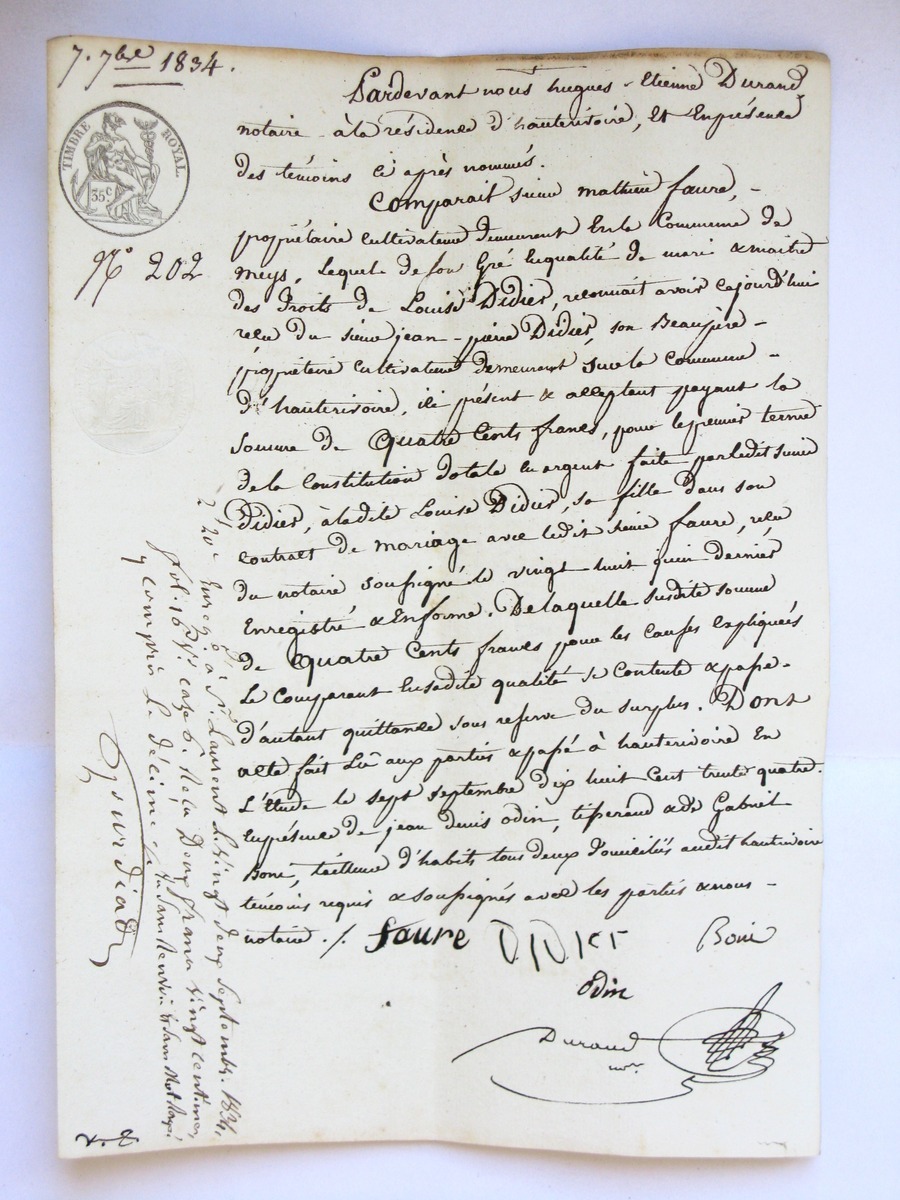 7. 7bre 1834.
TIMBRE ROYAL
35c
N° 202
Pardevant nous hugues-Etienne Durand
notaire à la résidence d'hauterivoire, Et Enprésence
des témoins ci après nommés.
Comparait sieur mathieu faure,
propriétaire cultivateur demeurant En la Commune de
meys, lequel de son Gré Enqualité de mari & maitre
des Droits de Louise Didier, reconnait avoir cejourd'hui
reçu du sieur jean-pierre Didier, son Beaupère
propriétaire cultivateur demeurant sur la commune
d'hauterivoire, ici présent & acceptant payant la
somme de quatre Cents francs, pour le premier terme
de la Constitution dotale en argent faite par ledit sieur
Didier, à ladite Louise Didier, sa fille dans son
contract de mariage avec ledit sieur faure, reçu
du notaire soussigné le vingt huit juin dernier
Enregistré & Enforme. De laquelle susdite somme
de quatre Cents francs pour les causes expliquées
Le Comparant Ensadite qualité se contente & passe
d'autant quittance sous reserve du surplus. Dont
acte fait Lû aux parties & passé à hauterivoire En
L'étude le sept septembre dix huit Cent trente quatre.
Enprésence de jean denis odin, tisserand & de Gabriel
Boni, tailleur d'habits tous deux Domiciliés audit hauterivoire
témoins requis & soussignés avec les parties & nous
notaire ./.
faure DIDIER Boni
odin
Durand
nore
Enregé à St. Laurent Le vingt deux Septembre 1834,
fol. 16 Vo. case 6. Reçu Deux francs vingt centimes
y compris Le décime